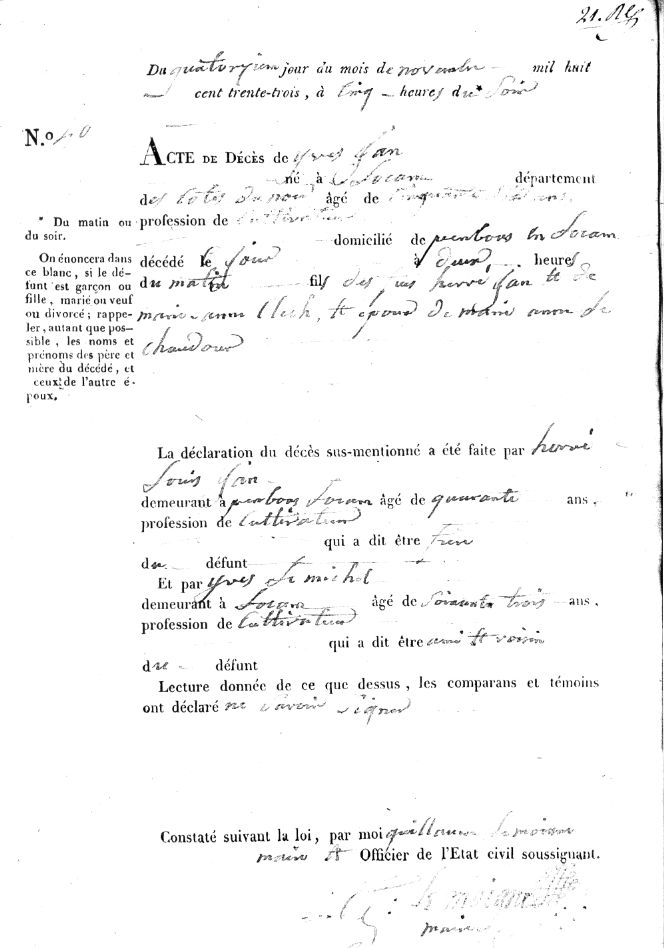 21.
Du quatorzieme jour du mois de novembre mil huit
cent trente-trois, à cinq heures du* Soir
N.º 40
ACTE DE DÉCÈS de yves
né à Locarn département
des Cotes du nord âgé de Cinquante ans,
profession de Cultivateur
domicilié de penboas en Locarn
décédé le jour à deux heures
du matin fils des feu hervé et de
marie anne, et époux de marie anne Le
* Du matin ou
du soir.
On énoncera dans
ce blanc, si le dé-
funt est garçon ou
fille, marié ou veuf
ou divorcé; rappe-
ler, autant que pos-
sible, les noms et
prénoms des père et
mère du décédé, et
ceux de l'autre é-
poux.
La déclaration du décès sus-mentionné a été faite par hervé
Louis
demeurant à penboas Locarn âgé de quarante ans,
profession de Cultivateur
qui a dit être frere
du défunt
Et par yves Le michel
demeurant à Locarn âgé de Soixante trois ans,
profession de Cultivateur
qui a dit être ami et voisin
du défunt
Lecture donnée de ce que dessus, les comparans et témoins
ont déclaré ne Savoir Signer
Constaté suivant la loi, par moi guillaume Le
maire et Officier de l'Etat civil soussignant.
maire